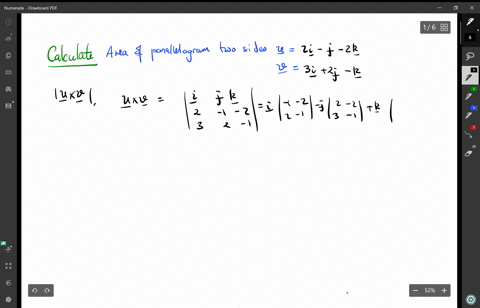 Numerade - Drawboard PDF
1 / 6
Calculate Area of parallelogram two sides u = 2i - j - 2k
v = 3i + 2j - k
|u×v|, u×v = | i j k | = i | -1 -2 | - j | 2 -2 | + k |
2 -1 -2 2 -1 3 -1
3 2 -1
52%